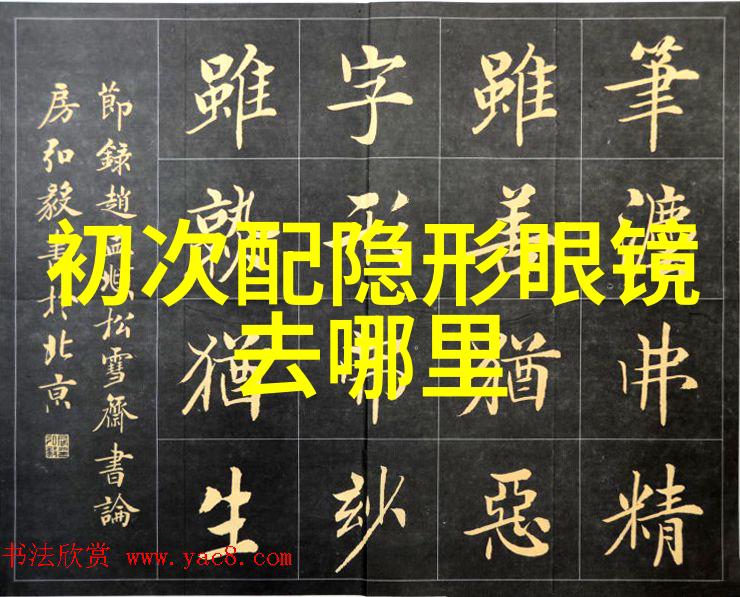 筆灋弗精
雖善猶惡
字形弗玅
雖熟猶生
節錄趙孟頫松雪齋書論
房弘毅書於北京
初次配隐形眼镜
去哪里
书法欣赏 www.yac8.com